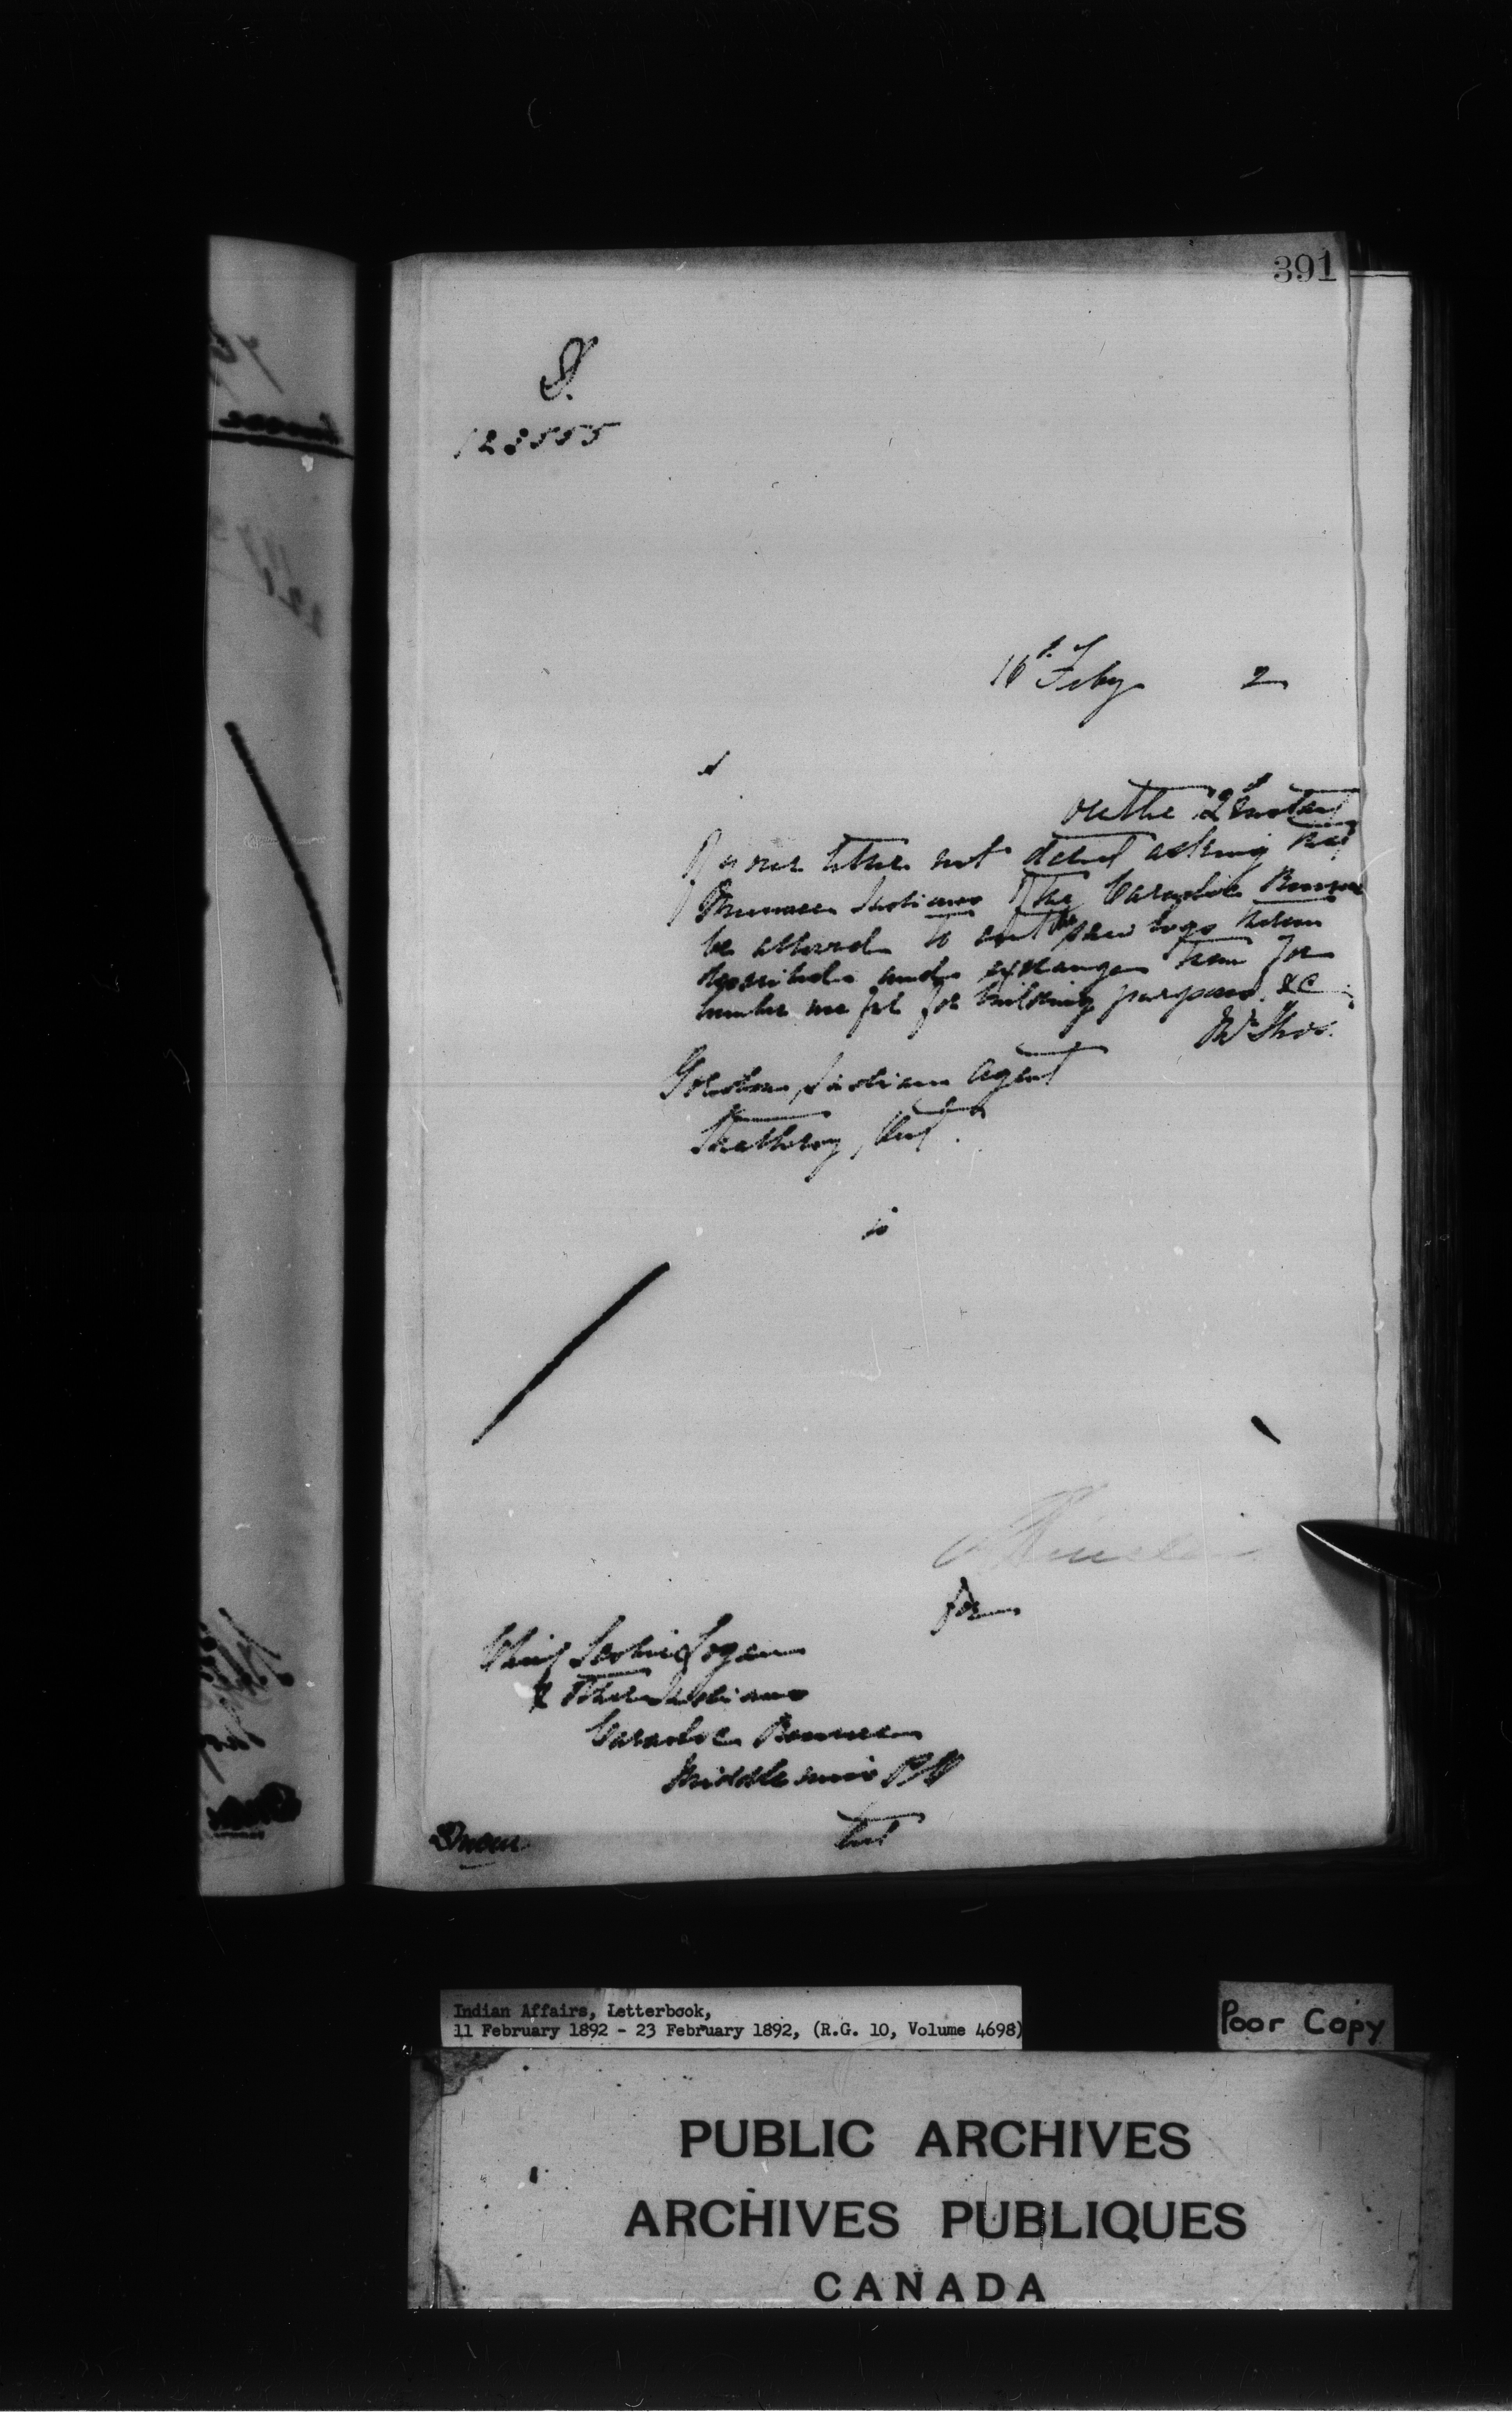 391
123555
16th Feby 2
on the 2d Instant
of your letter not dated asking that
Munsee Indians of the Caradoc Reserve
be allowed to cut the saw logs therein
described and exchange them for
lumber for building purposes &c
Mr Thos.
Gordon, Indian Agent
Strathroy, Ont.
to
for
Chief Logan
& Other Indians
Caradoc Reserve
Middlemiss P.O.
Ont
Indian Affairs, Letterbook,
11 February 1892 - 23 February 1892, (R.G. 10, Volume 4698)
Poor Copy
PUBLIC ARCHIVES
ARCHIVES PUBLIQUES
CANADA